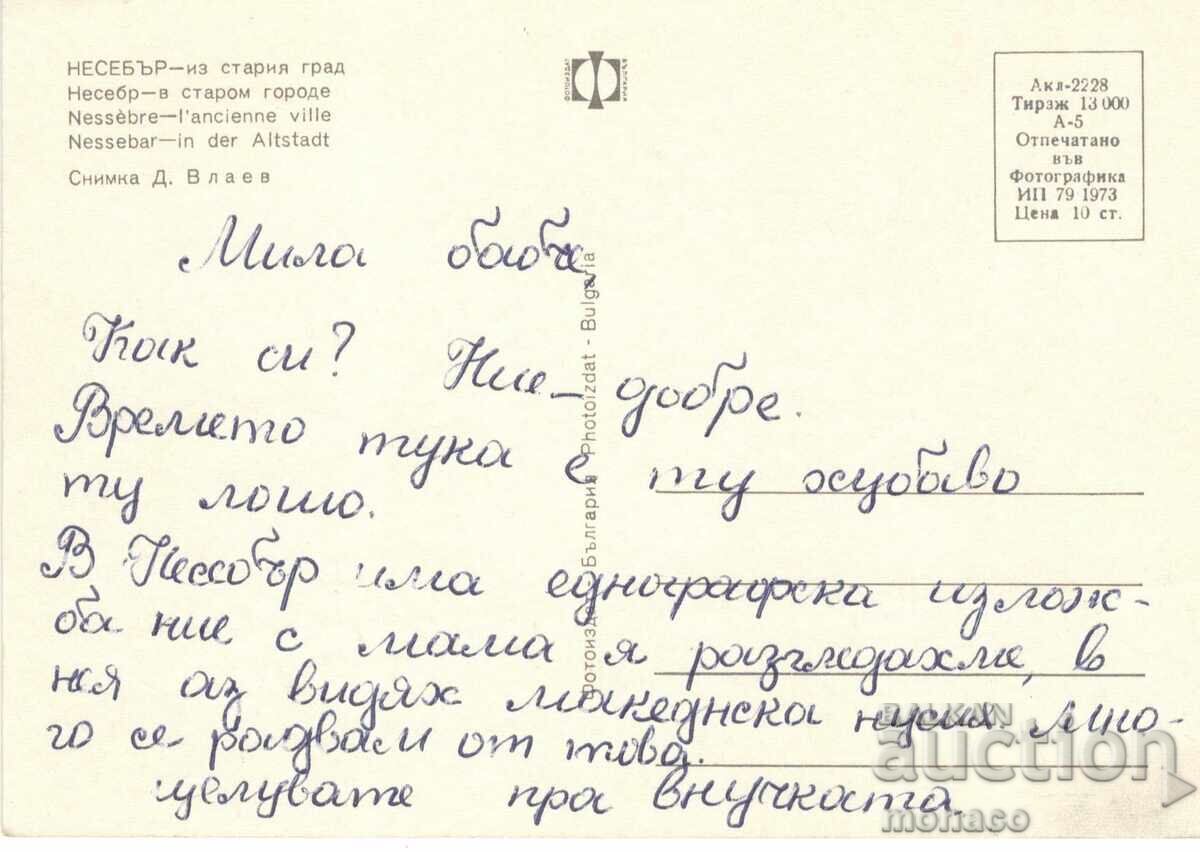 НЕСЕБЪР—из стария град
Несебр—в старом городе
Nessèbre—l'ancienne ville
Nessebar—in der Altstadt
Снимка Д. Влаев
ФОТОИЗДАТ
БЪЛГАРИЯ
Акл-2228
Тираж 13 000
А-5
Отпечатано
във
Фотографика
ИП 79 1973
Цена 10 ст.
Фотоиздат България Photoizdat - Bulgaria
Мила бабче,
Как си? Ние – добре.
Времето тука е ту хубаво
ту лошо.
В Нессебър има еднографска излож-
ба ние с мама я разгледахме, в
нея аз видях македнска носия мно-
го се радвам от това.
целувате пра внучката.
BALKAN
auction
monaco